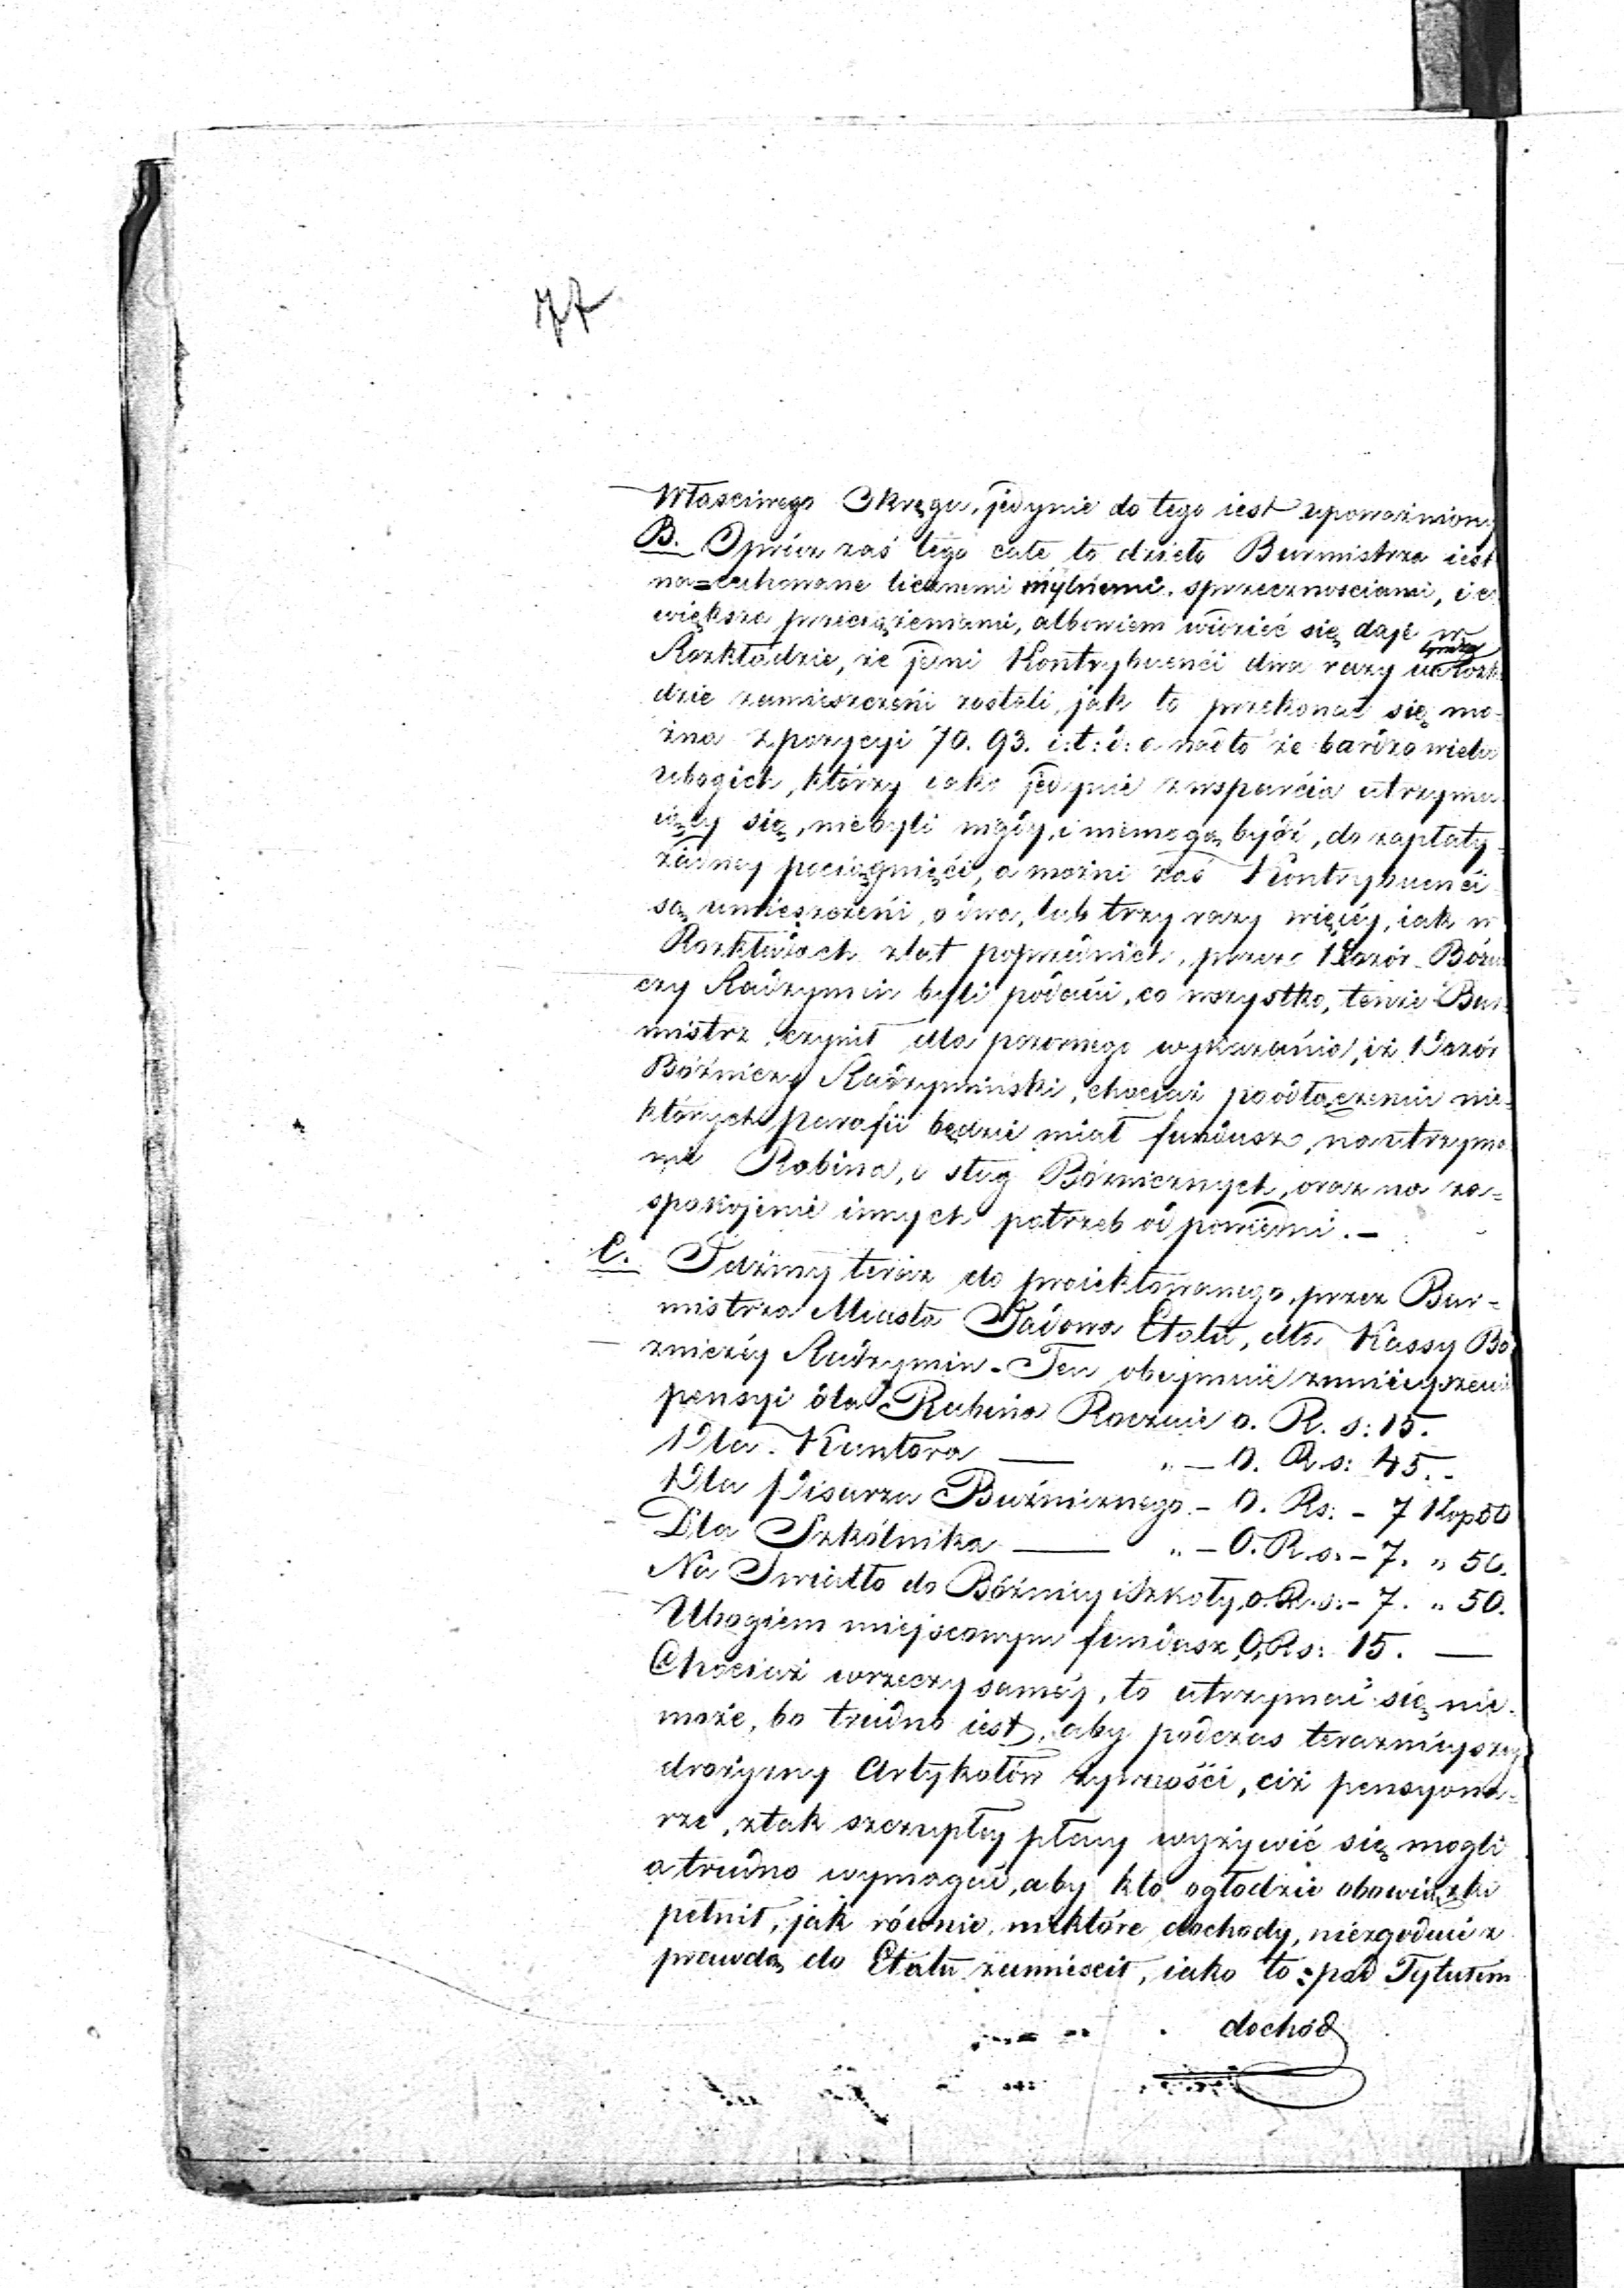 77
Własciwego Okręgu, jedynie do tego iest upoważniony
B. Oprócz zaś tego całe to dzieło Burmistrza iest
na=cechowane licznemi mylnemi sprzecznosciami, i
większe przeciążeniami, albowiem widzieć się daje w
Rozkładzie, że jedni Kontrybuenci dwa razy
dzie zamieszczeni zostali, jak to przekonać się mo-
żna z pozycyi 70. 93. i:t:d: a nadto że bardzo wielu
ubogich, którzy iako jedynie z wsparcia utrzymu
iący się, niebyli nigdy, i niemogą bydź, do zapłaty
żadney pociągnięci, a możni zaś Kontrybuenci
są umieszczeni, o dwa, lub trzy razy więcéy, iak w
Rozkładach z lat poprzednich, przez Dozór Bóźni
czy Radzymin byli podani, co wszystko, tenże Bur-
mistrz, czynił dla pozornego wykazania, iż Dozór
Bóźniczy Radzymiński, chociaż po odłączeniu nie-
których parafii będzie miał fundusz, na utrzyma
nie Rabina, i sług Bóżnicznych, oraz na za=
spokojenie innych potrzeb odpowiedni. –
C. Idźmy teraz do proiektowanego, przez Bur=
mistrza Miasta Jadowa Etatu, dla Kassy Bó
zniczéy Radzymin – Ten obejmuie zmnieyszenie
pensyi dla Rabina Rocznie o. R. s: 15.
Dla Kantora — " – O. R. s: 45. –
Dla Pisarza Bużnicznego – O. Rs: – 7 Kop 50
Dla Szkólnika — " – O. R. s. – 7. " 50.
Na Swiatło do Bóźnicy i Szkoły, o. R. s: – 7. " 50.
Ubogiem miejscowym fundusz, O, Rs: 15. —
Chociaż w rzeczy saméj, to utrzymać się nie-
może, bo trudno iest, aby podczas teraznieyszey
drożyzny Artykołów żywności, ciż pensyona=
rze, z tak szczupłey płacy wyżywić się mogli
a trudno wymagać, aby kto ogłodzie obowiązki
pełnił, jak równie, niektóre dochody, niezgodnie z
prawdą do Etatu zamieścił, iako to: pod Tytułem
dochód